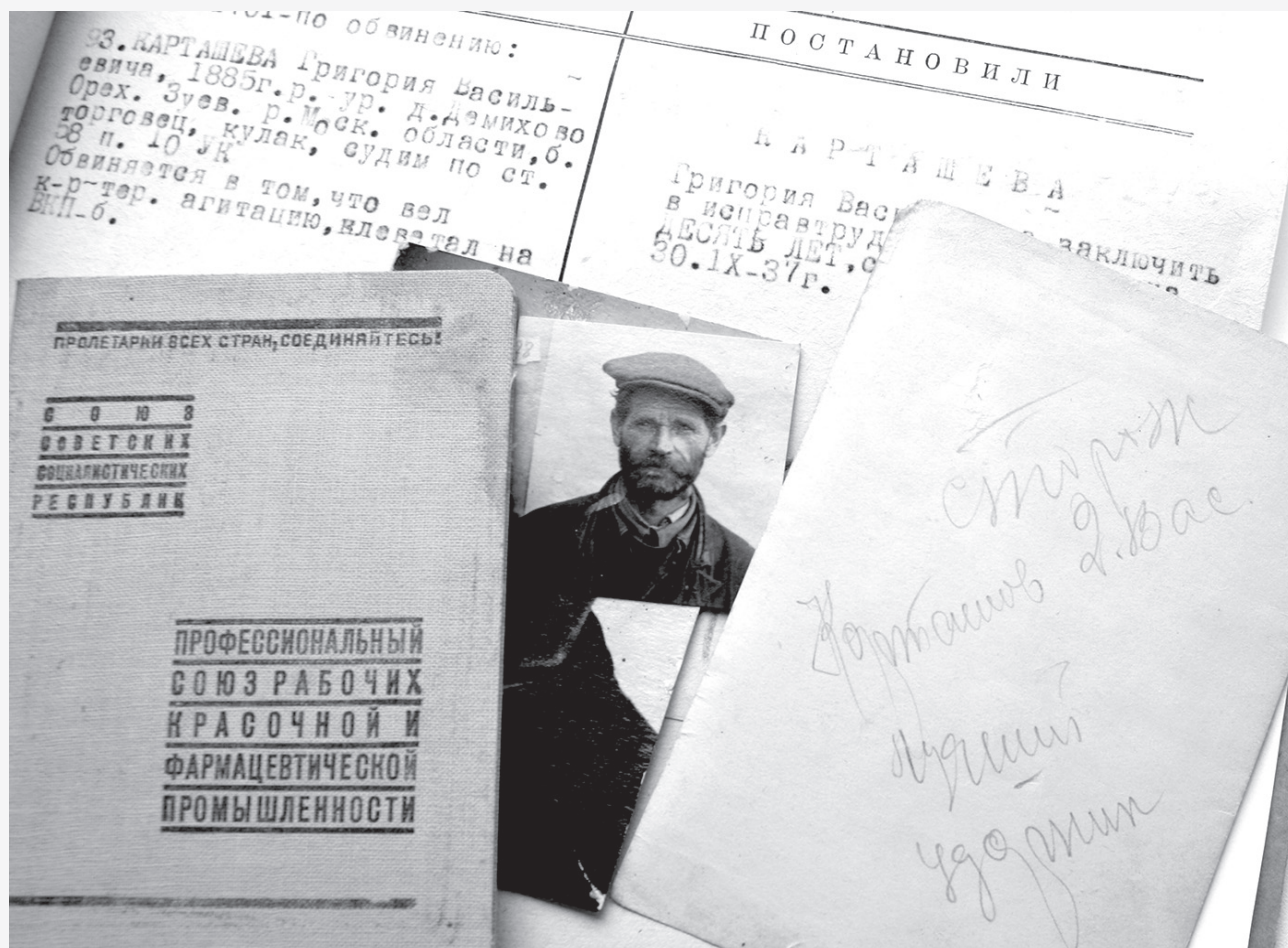 по обвинению:
93.КАРТАШЕВА Григория Василь-
евича, 1885г.р. ур. д.Демихово
Орех. Зуев. р.Моск. области,б.
торговец, кулак, судим по ст.
58 п. 10 УК
Обвиняется в том,что вел
к-р-тер. агитацию,клеветал на
ВКП-б.
ПОСТАНОВИЛИ
КАРТАШЕВА
Григория Вас
заключить
в исправтруд
ДЕСЯТЬ ЛЕТ,с
30.IX-37г.
ПРОЛЕТАРИИ ВСЕХ СТРАН,СОЕДИНЯЙТЕСЬ!
СОЮЗ
СОВЕТСКИХ
СОЦИАЛИСТИЧЕСКИХ
РЕСПУБЛИК
ПРОФЕССИОНАЛЬНЫЙ
СОЮЗ РАБОЧИХ
КРАСОЧНОЙ И
ФАРМАЦЕВТИЧЕСКОЙ
ПРОМЫШЛЕННОСТИ
Сторож
Карташов Г.Вас.
лучший
ударник